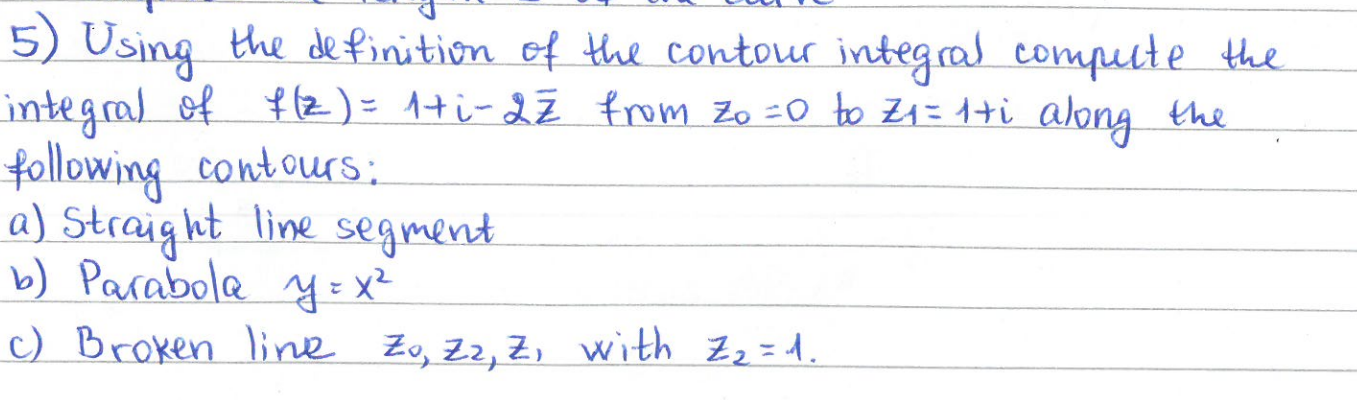 5) Using the definition of the contour integral compute the
integral of f(z) = 1+i-2z̄ from z₀=0 to z₁=1+i along the
following contours:
a) Straight line segment
b) Parabola y=x²
c) Broken line z₀, z₂, z₁ with z₂=1.